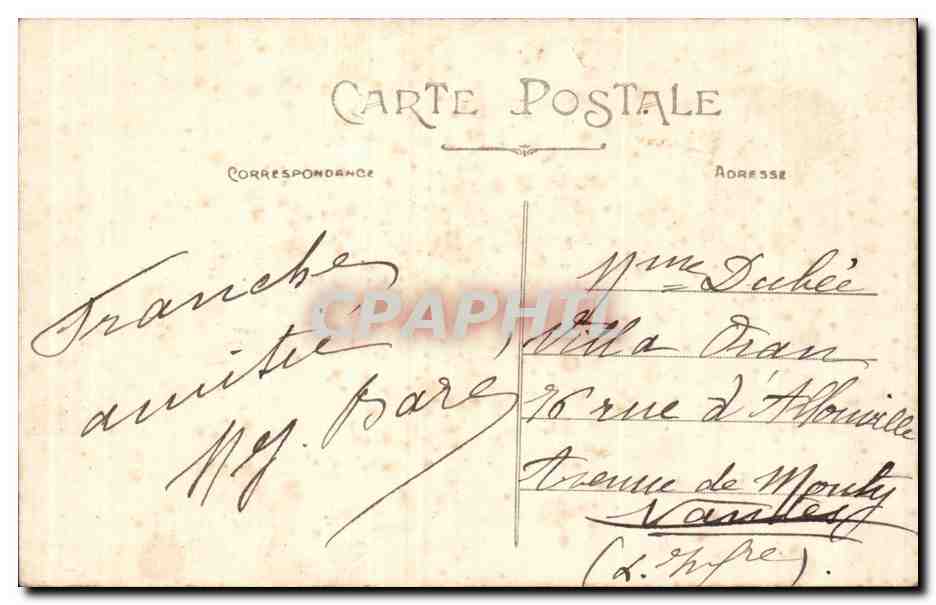 CARTE POSTALE
CORRESPONDANCE
ADRESSE
Franche
amitié
Bare
Mme Dubée
Villa Oran
rue d'Allonville
Avenue de Mouty
Nantes
(L. Infre).
CPAPHIL